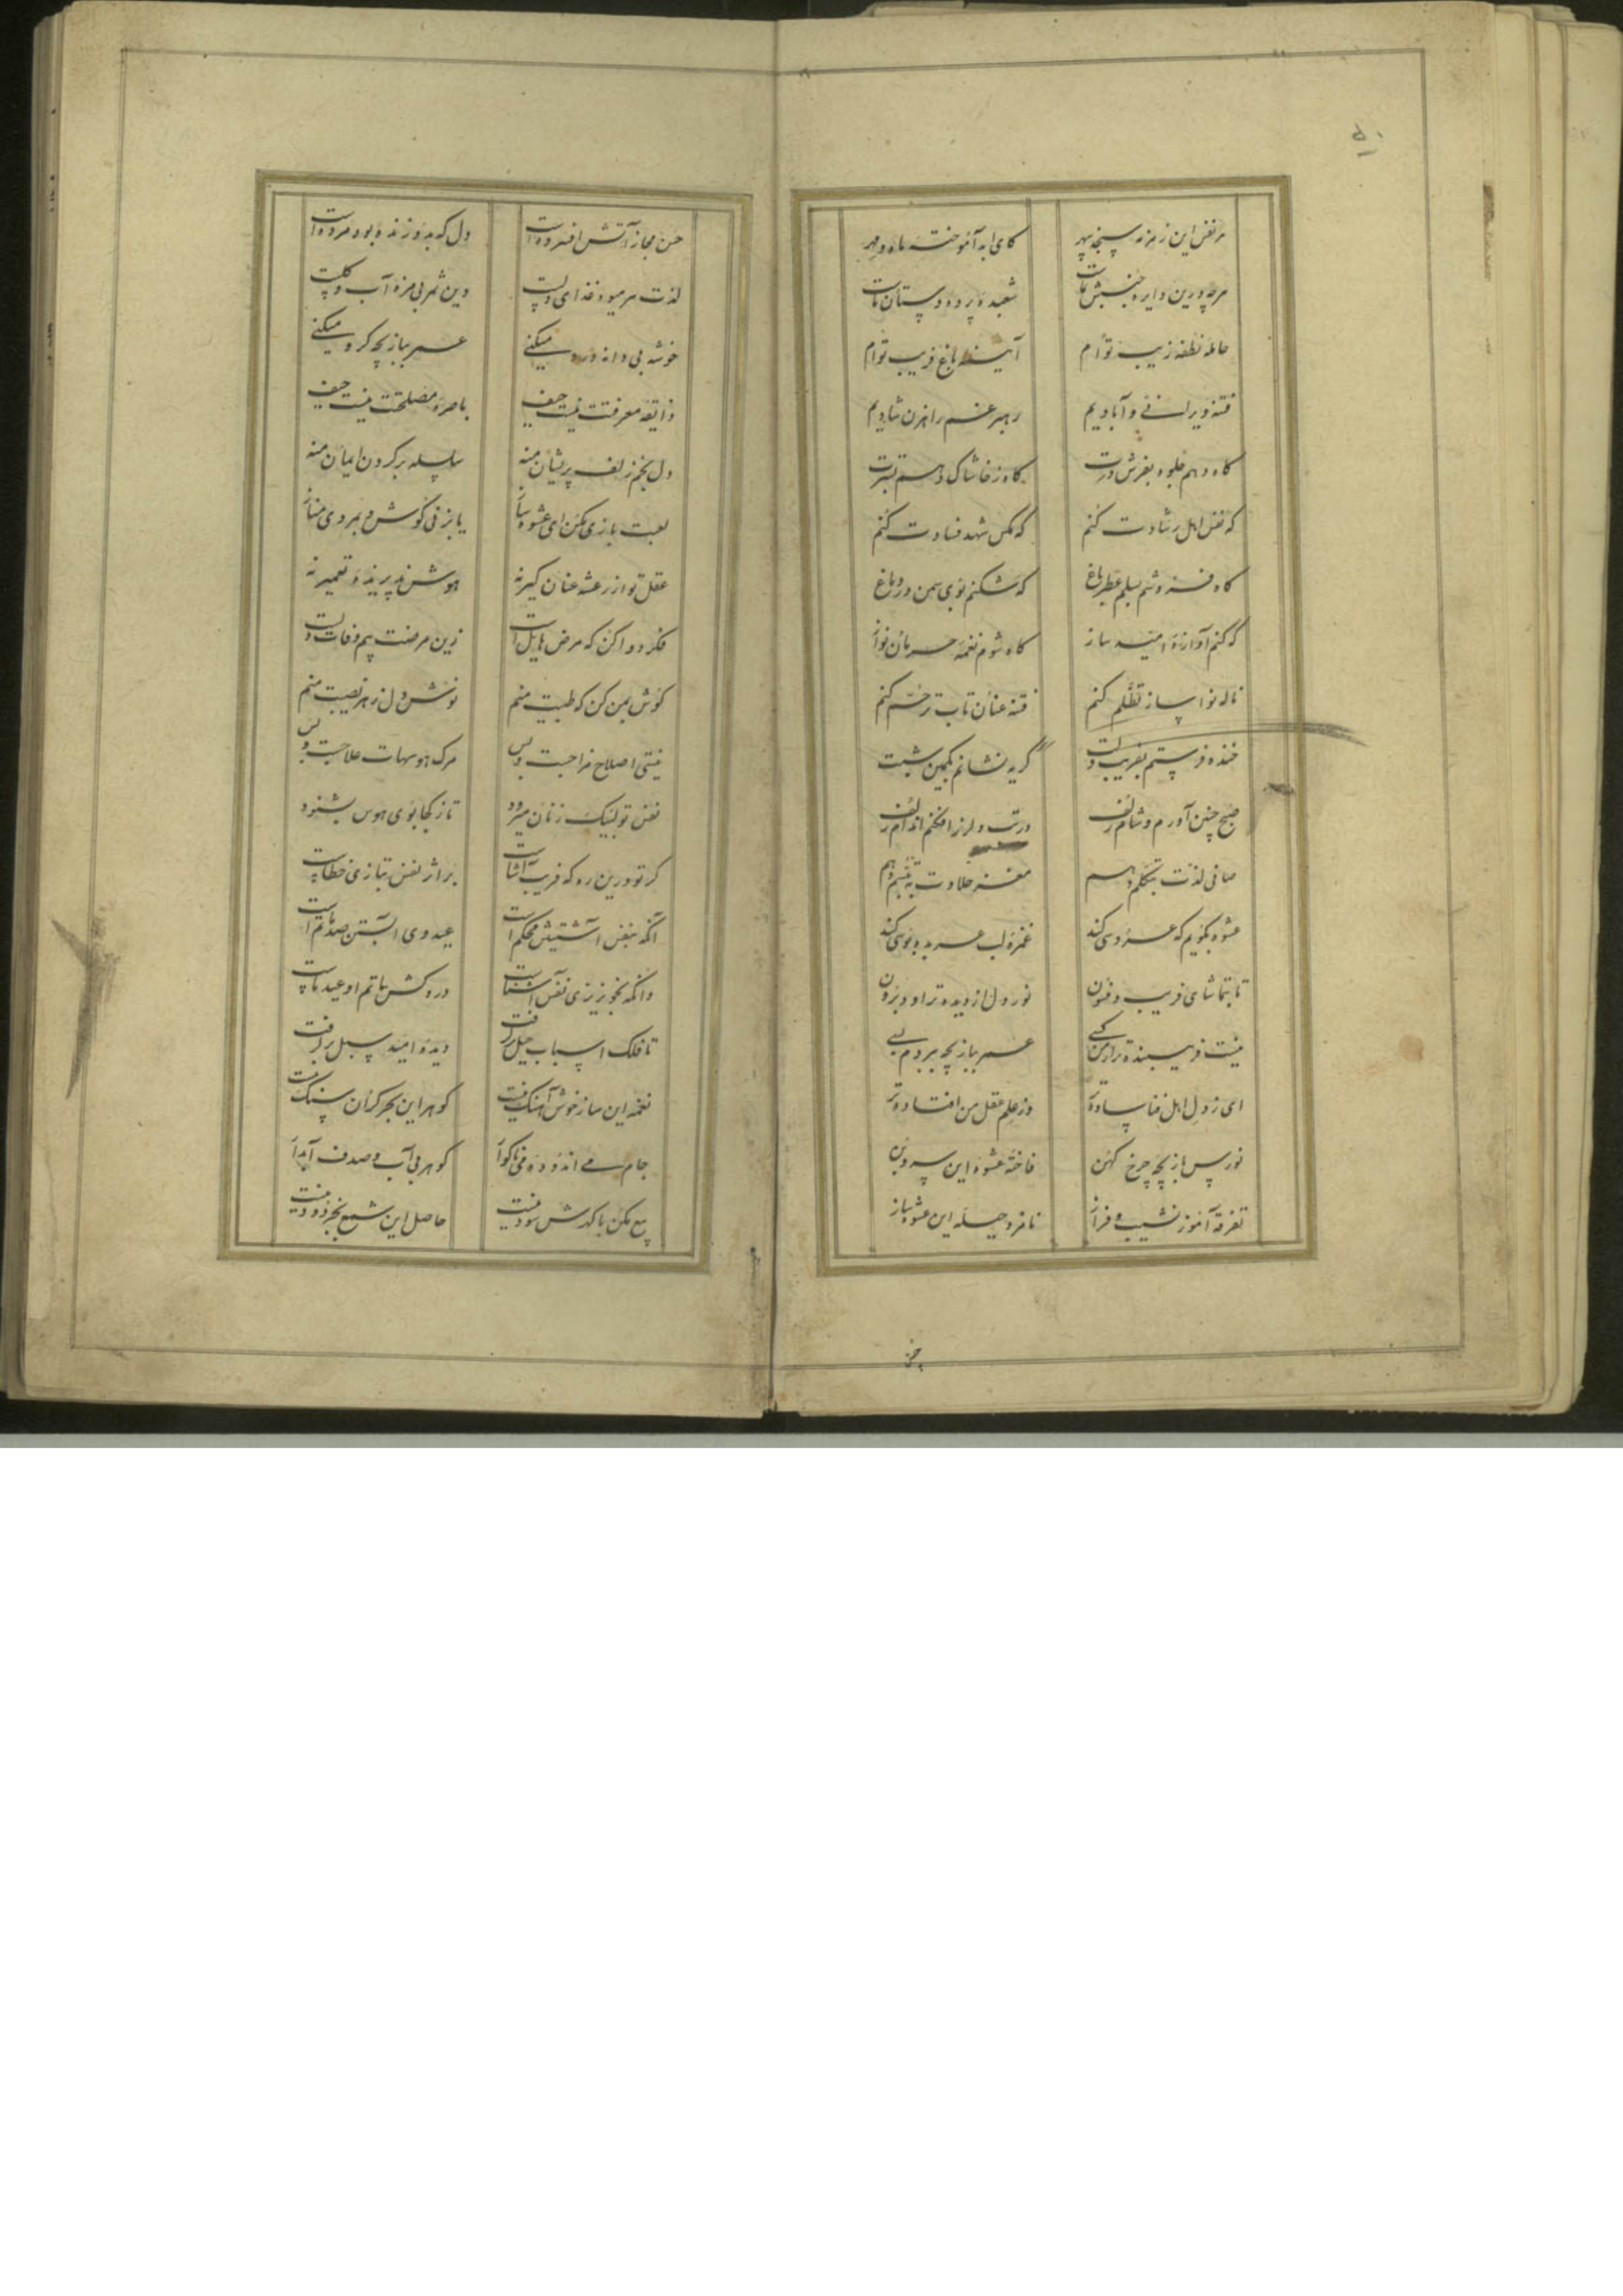 هر نفس این زمزمه سنجد سپهر
کای ابد آموخته ماه و مهر
هرچه درین دایره جنبش ماست
شعبده پرده دستان ماست
حامله نطفه زیب توام
آینه باغ فریب توام
فتنه ویرانی و آبادیم
رهبر غم راهزن شادیم
گاه دهم جلوه بفرش درت
گاه ز خاشاک دهم بسترت
که نفس اهل رشادت کنم
که مگس شهد فسادت کنم
گاه فروشم بدلم عطر باغ
که شکنم بوی سمن در دماغ
که کنم آوازه امید ساز
گاه شوم نغمه حرمان نواز
ناله نوا ساز تظلم کنم
فتنه عنان تاب ترحم کنم
خنده فرستم بفریب دلت
گریه نشانم بکمین
صبح چنین آورم و شام زلف
ورت دلرز افکنم اندام زلف
صافی لذت بتکلم دهم
مغز حلاوت به تبسم دهم
عشوه بگویم که عروسی کند
غمزه لب عربده بوسی کند
تا بتماشای فریب و فنون
نور دل از دیده تراود برون
نیست فریبنده تر از من کسی
عمر ببازیچه ببردم بسی
ای ز دل اهل فنا ساده تر
وز علم عقل من افتاده تر
نورس بازیچه چرخ کهن
فاخته عشوه این سروبن
تفرقه آموز نشیب و فراز
نامزد حیله این عشوه باز
حسن مجاز آتش افسرده است
دل که بدو زنده بود مرده است
لذت هر میوه غذای دلست
وین ثمر بی مزه آب و گلست
خوشه بی دانه درو میکنی
عمر ببازیچه گرو میکنی
ذایقه معرفتت نیست حیف
باصره مصلحتت نیست حیف
دل بخم زلف پریشان منه
سلسله بر گردن ایمان منه
لعبت بازی مکن ای عشوه ساز
یا بزنی کوش و بمردی مناز
عقل تو از رعشه عنان گیر نه
هوش پذیرنده تعمیر نه
فکر دوا کن که مرض هایل است
زین مرضت بیم وفات دلست
گوش بمن کن که طبیبت منم
نوش دل زهر نصیبت منم
نیستی اصلاح مزاجست و بس
مرگ هوسهات علاجست و بس
نفس تو لبیک زنان میرود
تا ز کجا بوی هوس بشنود
گر تو درین ره که فریب آشناست
بر اثر نفس بتازی خطاست
آنکه بنفس آشتیش محکم است
عید وی آبستن صد ماتم است
وانکه بخونریزی نفس آشناست
درد کش ماتم او عید ماست
تا فلک اسباب حیل برگرفت
دیده امید سبل برگرفت
نغمه این ساز خوش آهنگ نیست
گوهر این بحر گران سنگ نیست
جام می اندوده و می ناگوار
گوهر بی آب و صدف آبدار
بیع مکن باکه درش سود نیست
حاصل این شمع بجز دود نیست